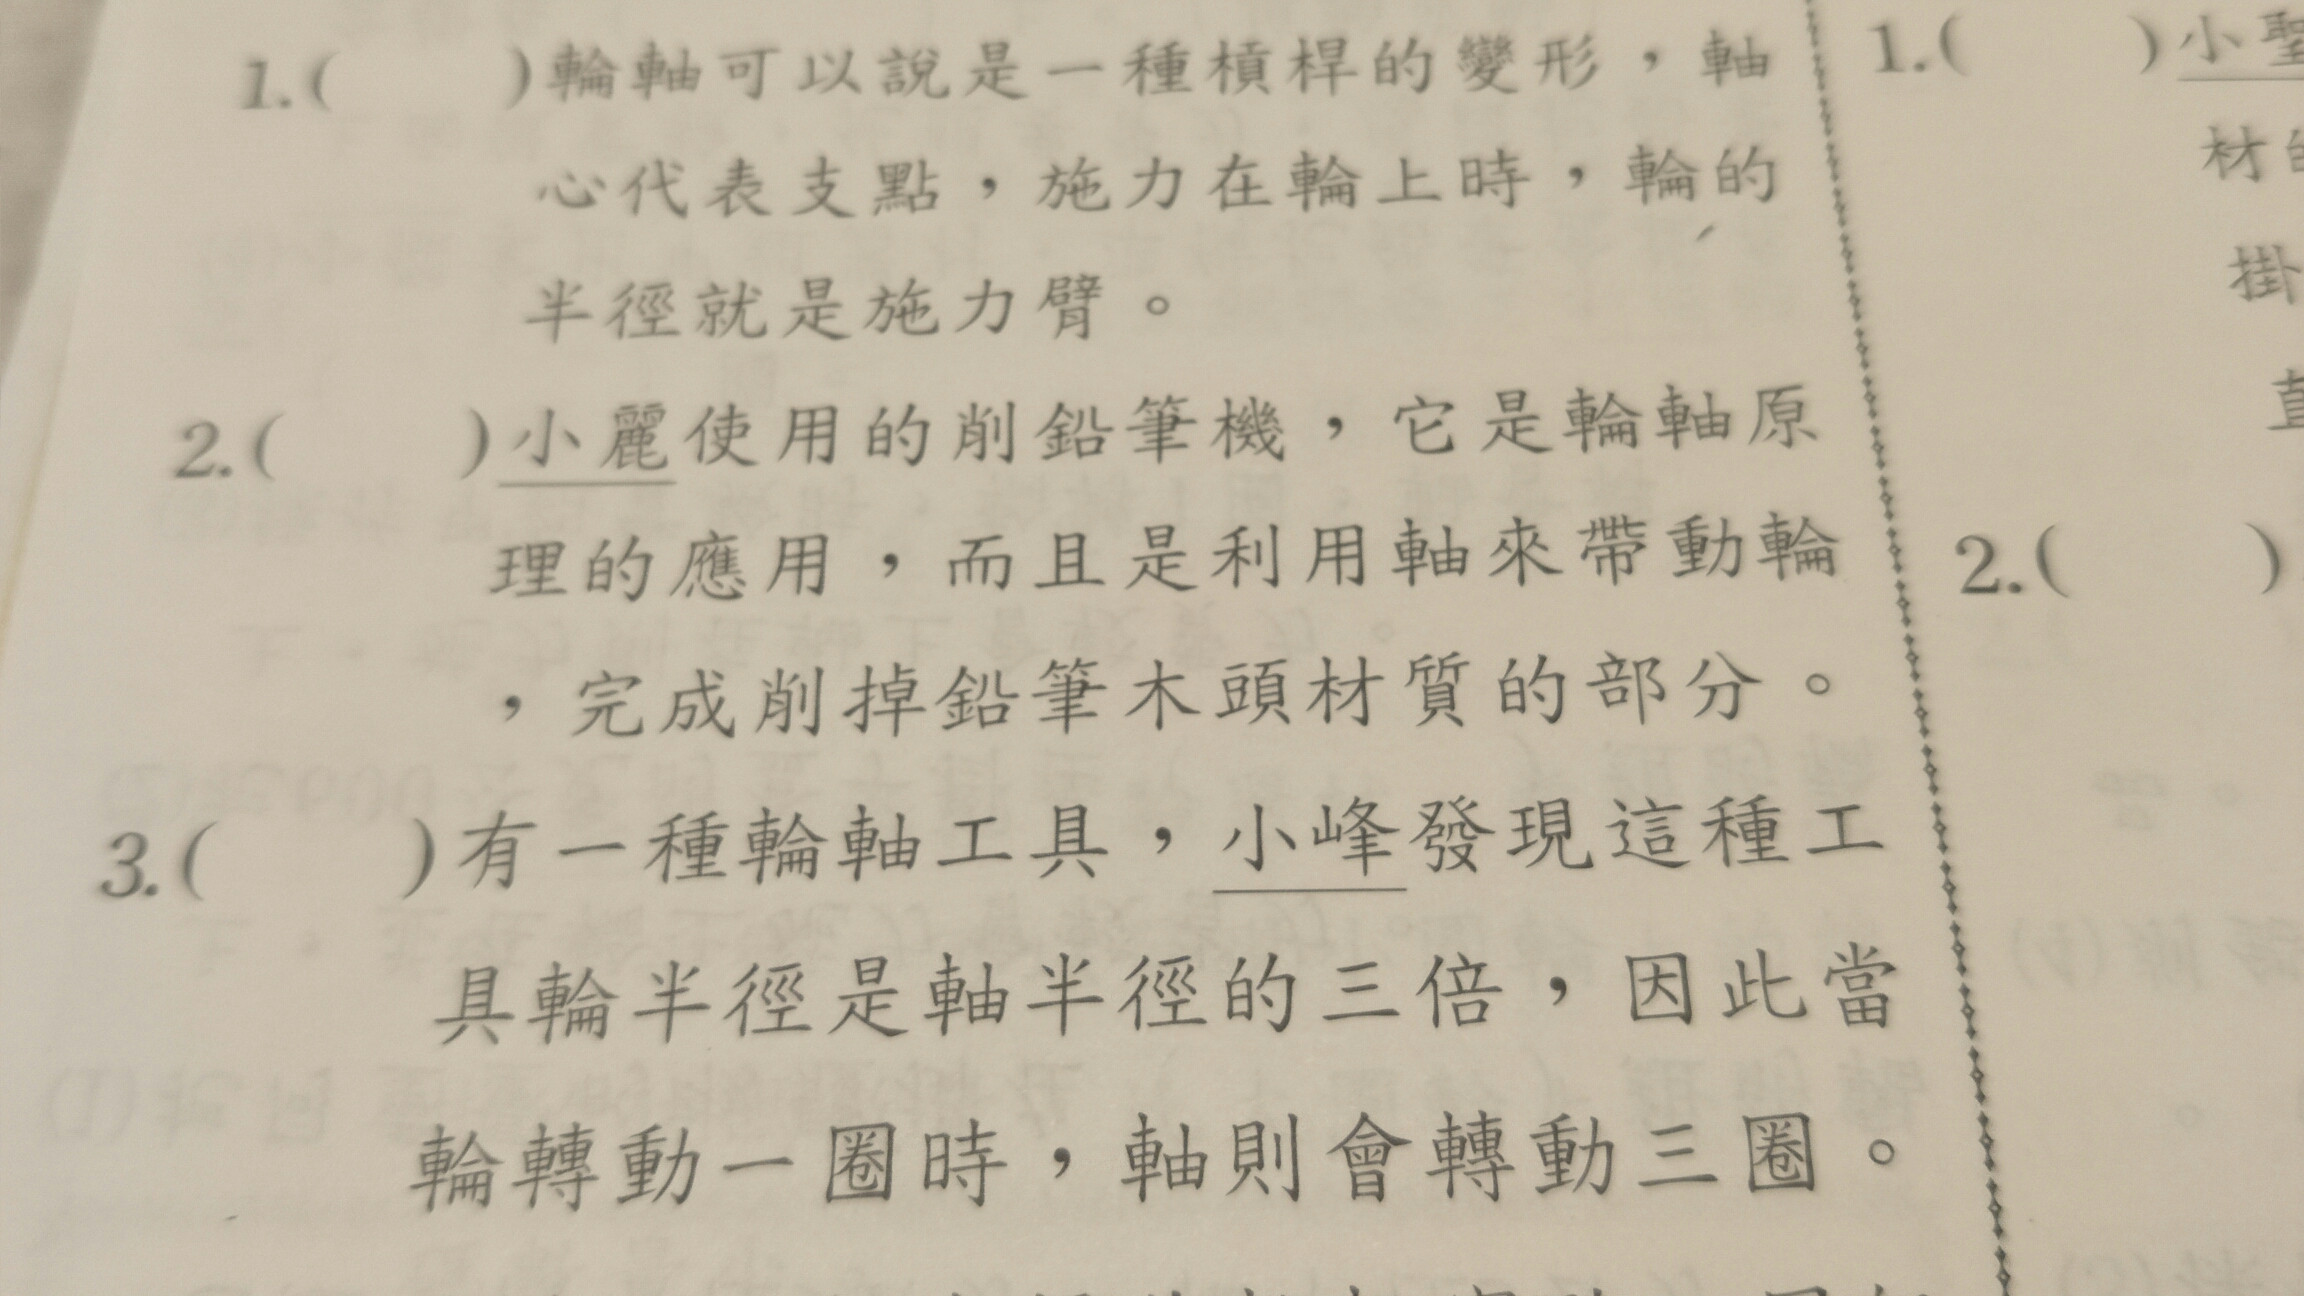 1.(　　)輪軸可以說是一種槓桿的變形，軸
心代表支點，施力在輪上時，輪的
半徑就是施力臂。
2.(　　)小麗使用的削鉛筆機，它是輪軸原
理的應用，而且是利用軸來帶動輪
，完成削掉鉛筆木頭材質的部分。
3.(　　)有一種輪軸工具，小峰發現這種工
具輪半徑是軸半徑的三倍，因此當
輪轉動一圈時，軸則會轉動三圈。
1.(　　)小聖
材的
掛
直
2.(　　)